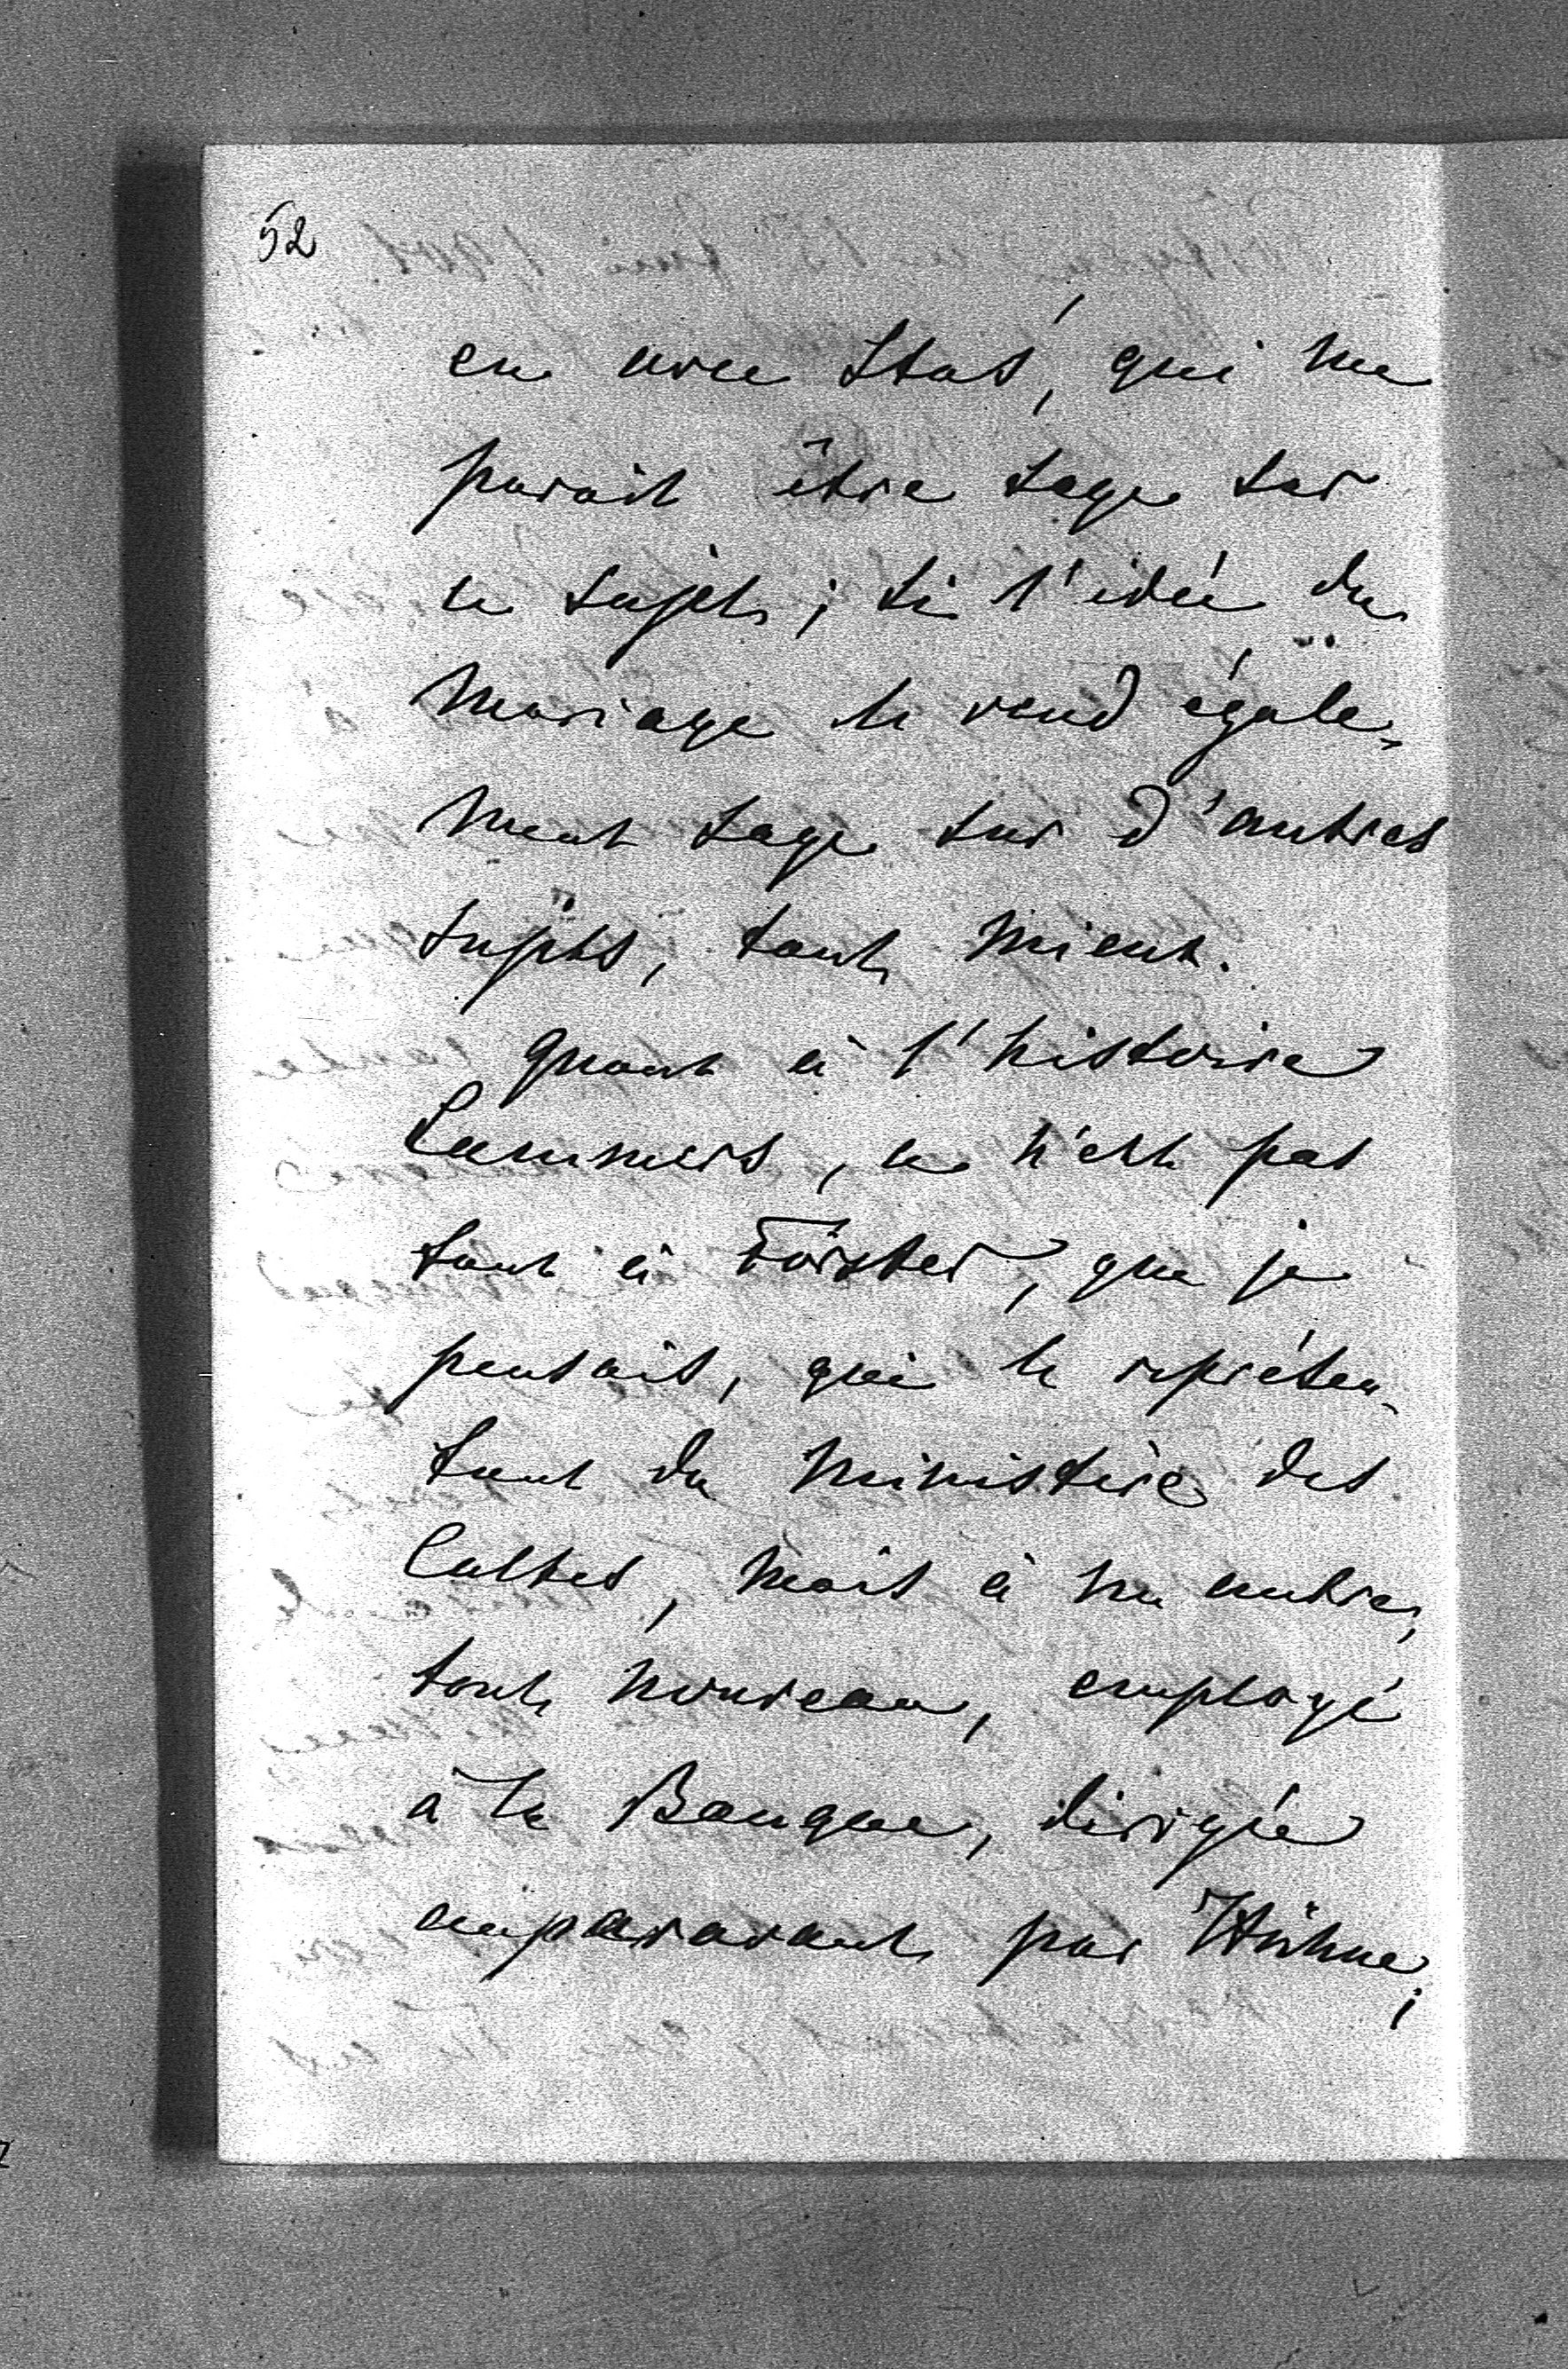 52
en avec Staś, qui me
parait être sage sur
ce sujet; si l'idée du
mariage le rend égale-
ment sage sur d'autres
sujets, tant mieux.
Quant à l'histoire
Lammers, ce n'est pas
tant à Förster, que je
pensais, qui le représen-
tant du Ministère des
Cultes, mais à un autre,
tout nouveau, employé
à la Banque, dirigée
auparavant par